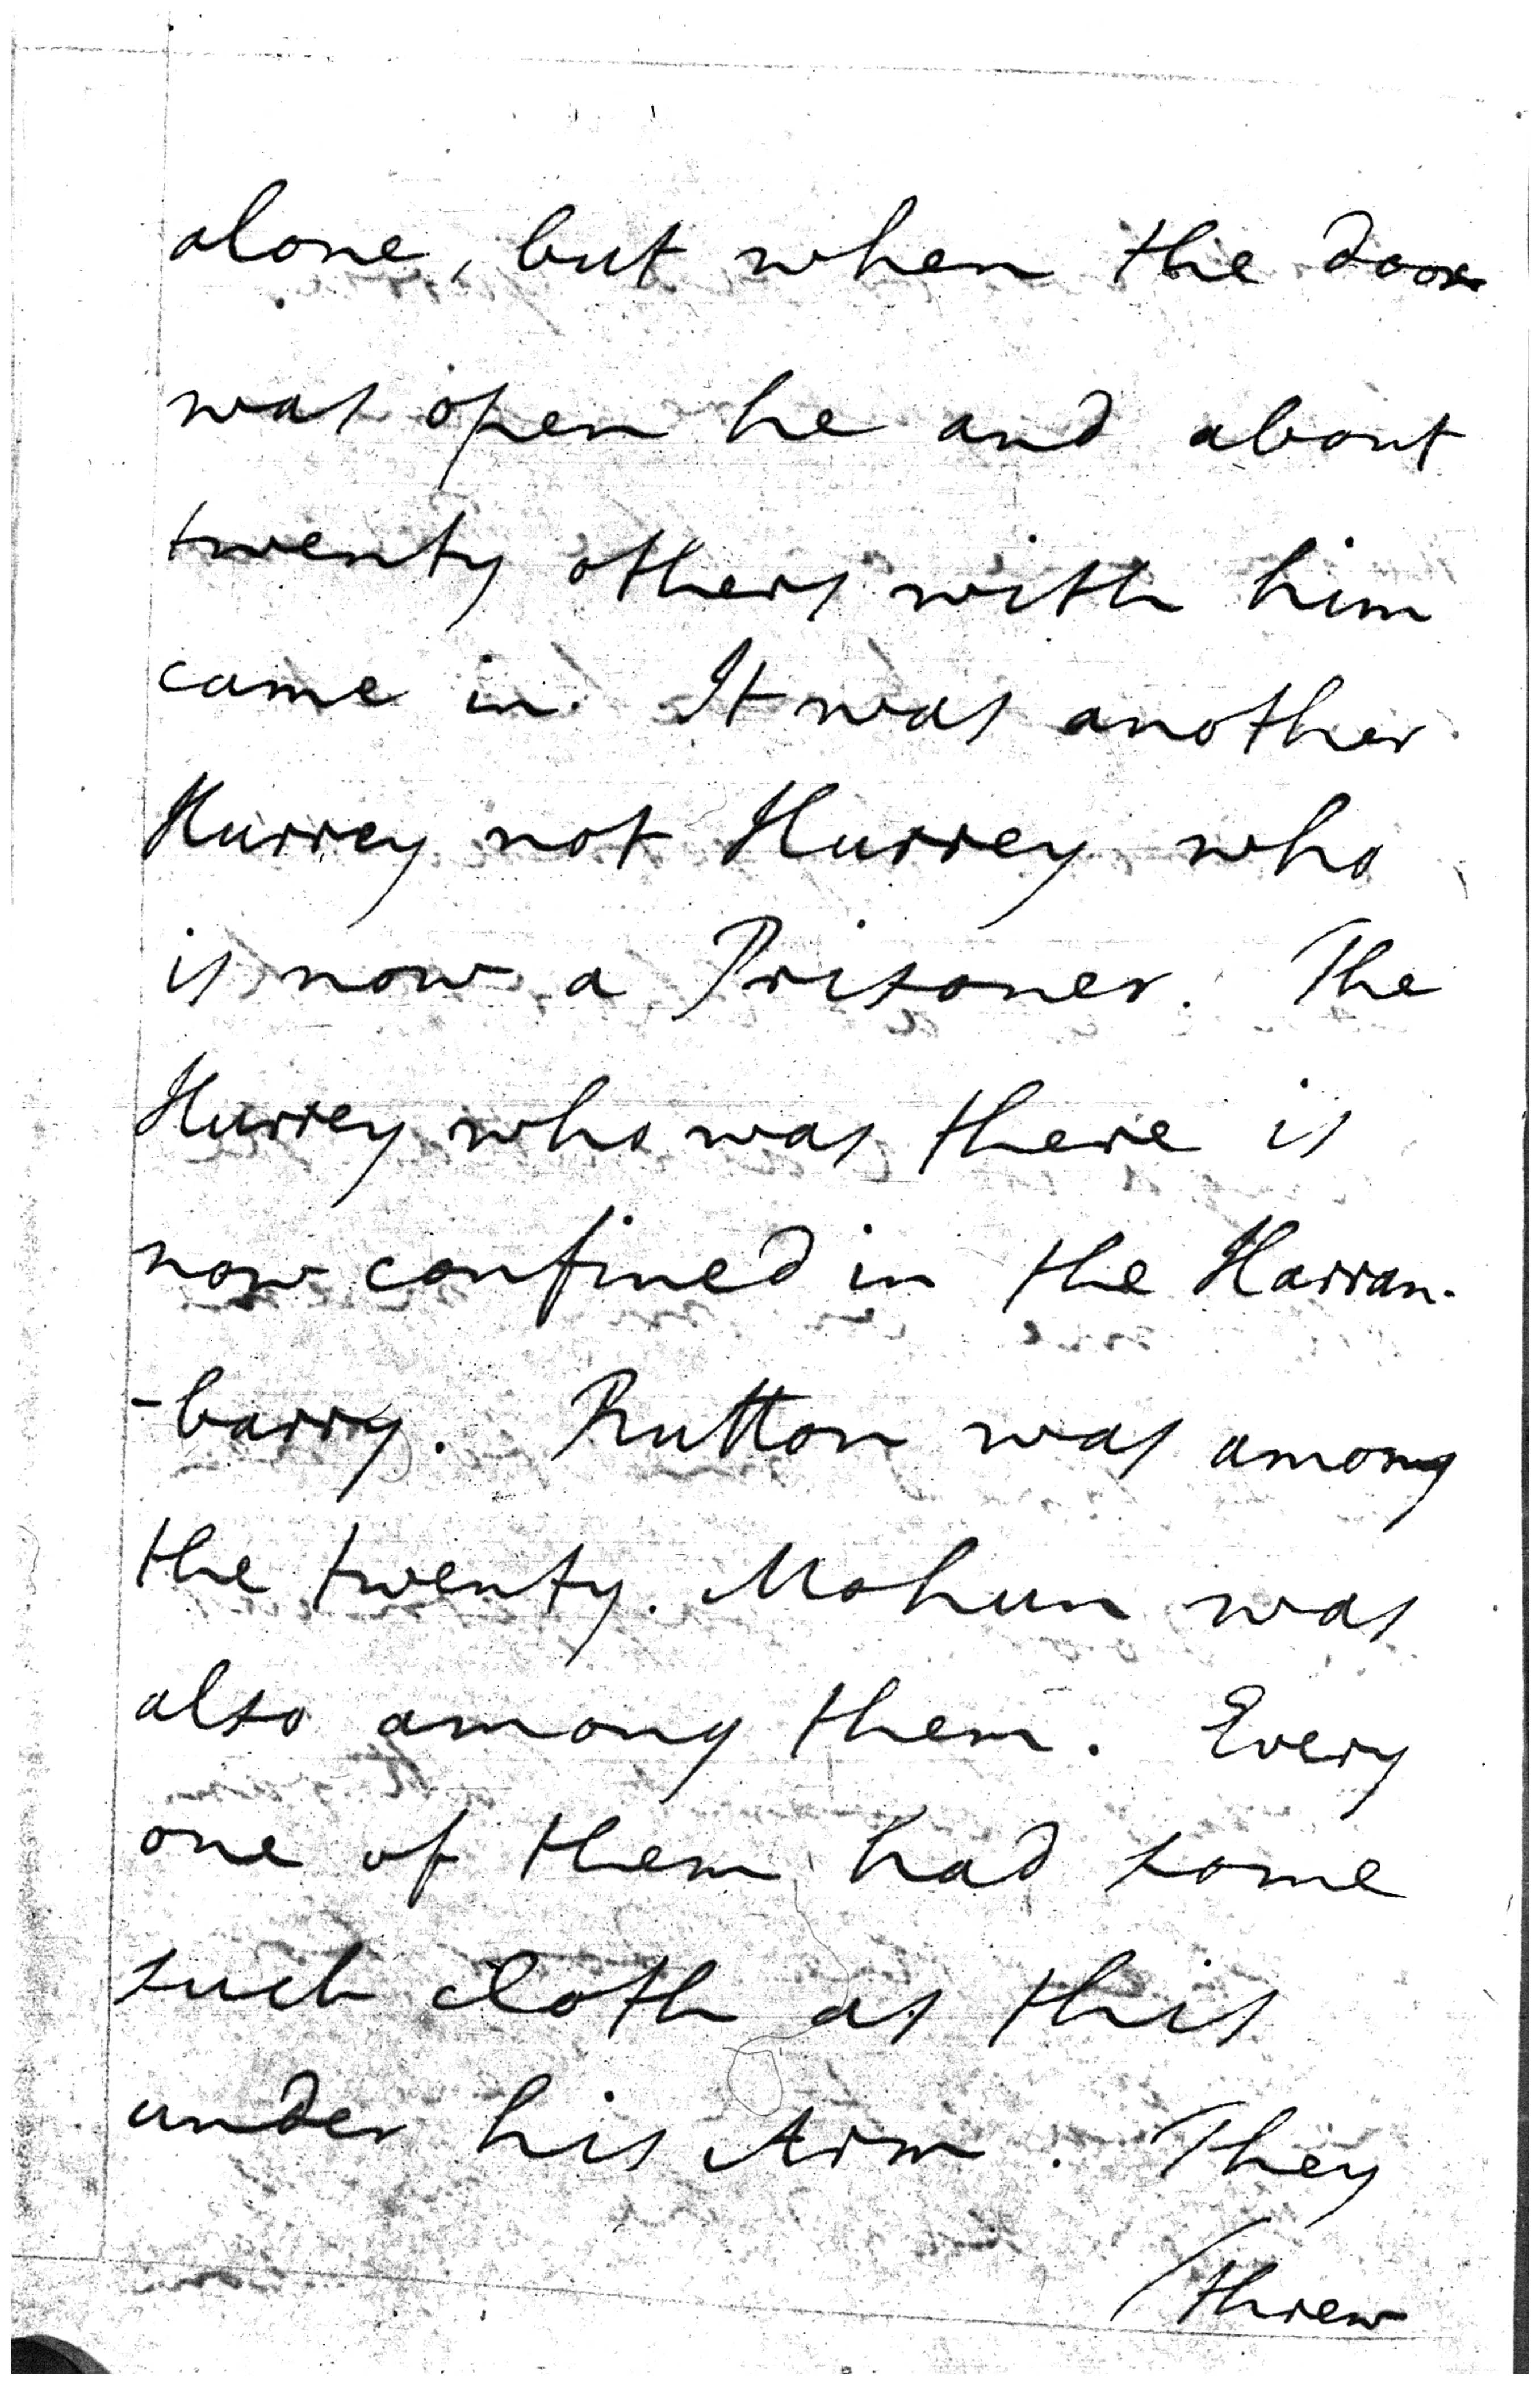 alone, but when the door
was open he and about
twenty others with him
came in. It was another
Hurrey not Hurrey who
is now a Prisoner. The
Hurrey who was there is
now confined in the Harran-
-barry. Rutton was among
the twenty. Mohun was
also among them. Every
one of them had some
such cloth as this
under his Arm. They
threw